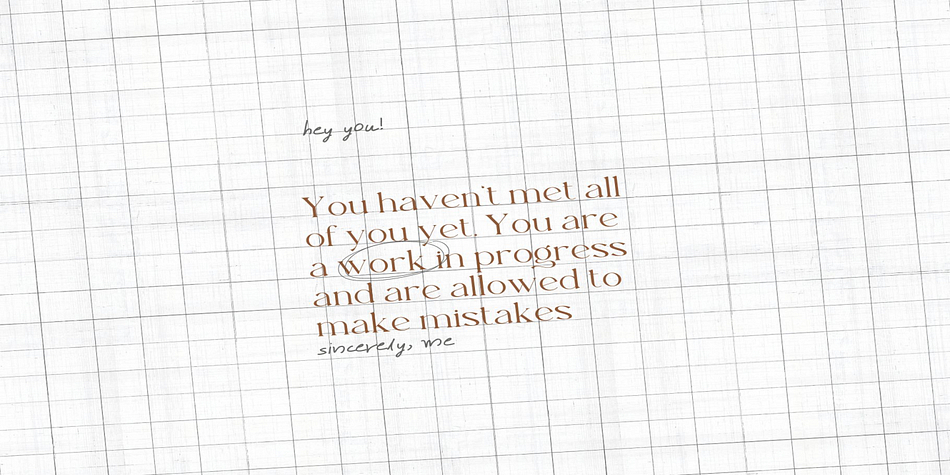 hey you!
You haven't met all
of you yet. You are
a work in progress
and are allowed to
make mistakes
sincerely, me